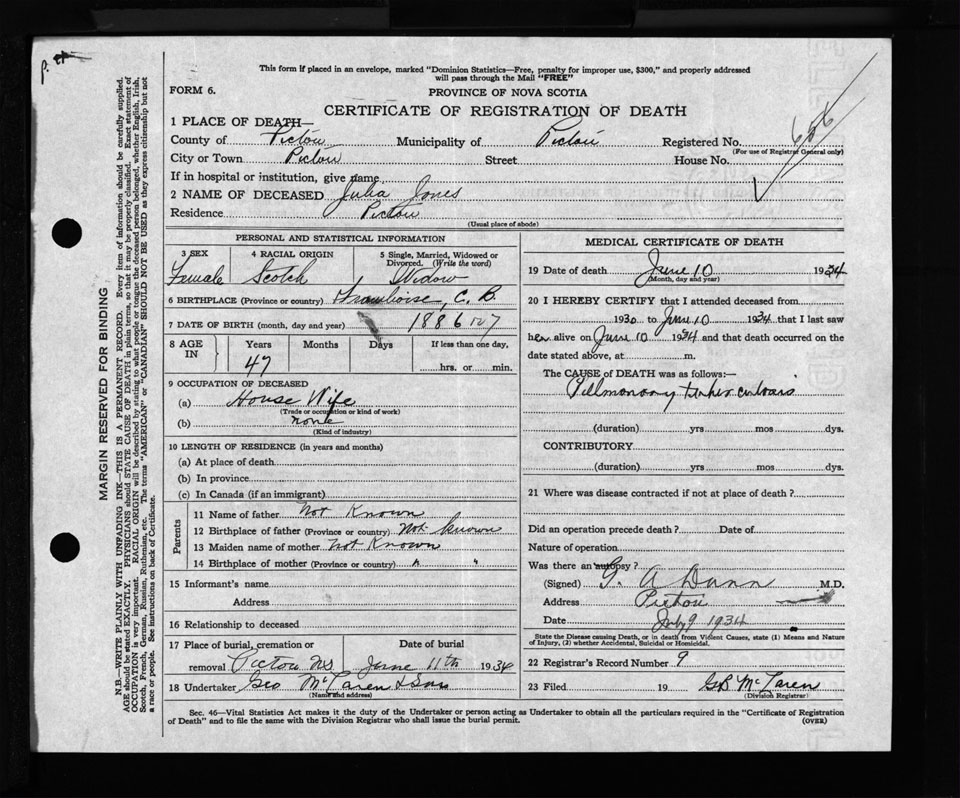 This form if placed in an envelope, marked "Dominion Statistics—Free, penalty for improper use, $300," and properly addressed
will pass through the Mail "FREE"
FORM 6.
PROVINCE OF NOVA SCOTIA
CERTIFICATE OF REGISTRATION OF DEATH
1 PLACE OF DEATH—
County of Pictou Municipality of Pictou Registered No. 626
(For use of Registrar General only)
City or Town Pictou Street House No.
If in hospital or institution, give name
2 NAME OF DECEASED Julia Jones
Residence Pictou
(Usual place of abode)
PERSONAL AND STATISTICAL INFORMATION
3 SEX 4 RACIAL ORIGIN 5 Single, Married, Widowed or Divorced. (Write the word)
Female Scotch Widow
6 BIRTHPLACE (Province or country) Framboise, C. B.
7 DATE OF BIRTH (month, day and year) 1886 or 7
8 AGE IN Years Months Days If less than one day,
47 hrs. or min.
9 OCCUPATION OF DECEASED
(a) House Wife
(Trade or occupation or kind of work)
(b) none
(Kind of industry)
10 LENGTH OF RESIDENCE (in years and months)
(a) At place of death
(b) In province
(c) In Canada (if an immigrant)
Parents
11 Name of father Not Known
12 Birthplace of father (Province or country) Not known
13 Maiden name of mother Not Known
14 Birthplace of mother (Province or country) " "
15 Informant's name
Address
16 Relationship to deceased
17 Place of burial, cremation or removal Date of burial
Pictou NS June 11th 1934
18 Undertaker Geo McLaren & Sons
(Name and address)
MEDICAL CERTIFICATE OF DEATH
19 Date of death June 10 1934
(Month, day and year)
20 I HEREBY CERTIFY that I attended deceased from
1930 to June 10 1934 that I last saw
her alive on June 10 1934 and that death occurred on the
date stated above, at m.
The CAUSE of DEATH was as follows:—
Pulmonary tuberculosis
(duration) yrs mos dys.
CONTRIBUTORY
(duration) yrs mos dys.
21 Where was disease contracted if not at place of death?
Did an operation precede death? Date of
Nature of operation
Was there an autopsy?
(Signed) G. A Dunn M.D.
Address Pictou
Date July 9 1934
State the Disease causing Death, or in death from Violent Causes, state (1) Means and Nature
of Injury, (2) whether Accidental, Suicidal or Homicidal.
22 Registrar's Record Number 9
23 Filed 19 GB McLaren
(Division Registrar)
Sec. 46—Vital Statistics Act makes it the duty of the Undertaker or person acting as Undertaker to obtain all the particulars required in the "Certificate of Registration
of Death" and to file the same with the Division Registrar who shall issue the burial permit.
(OVER)
MARGIN RESERVED FOR BINDING
N.B.—WRITE PLAINLY WITH UNFADING INK—THIS IS A PERMANENT RECORD. Every item of information should be carefully supplied.
AGE should be stated EXACTLY. PHYSICIANS should STATE CAUSE OF DEATH in plain terms, so that it may be properly classified. Exact statement of
OCCUPATION is very important. RACIAL ORIGIN will be described by stating to what people or tongue the deceased person belonged, whether English, Irish,
Scotch, French, German, Russian, Ruthenian, etc. The terms "AMERICAN" or "CANADIAN" SHOULD NOT BE USED as they express citizenship but not
a race or people. See instructions on back of Certificate.